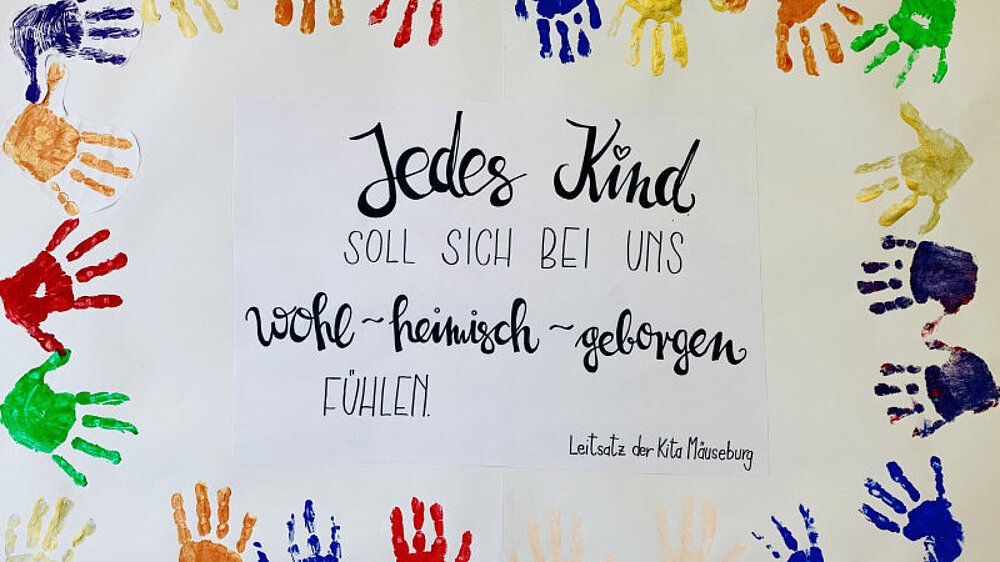 Jedes Kind
SOLL SICH BEI UNS
wohl ~ heimisch ~ geborgen
FÜHLEN.
Leitsatz der Kita Mäuseburg